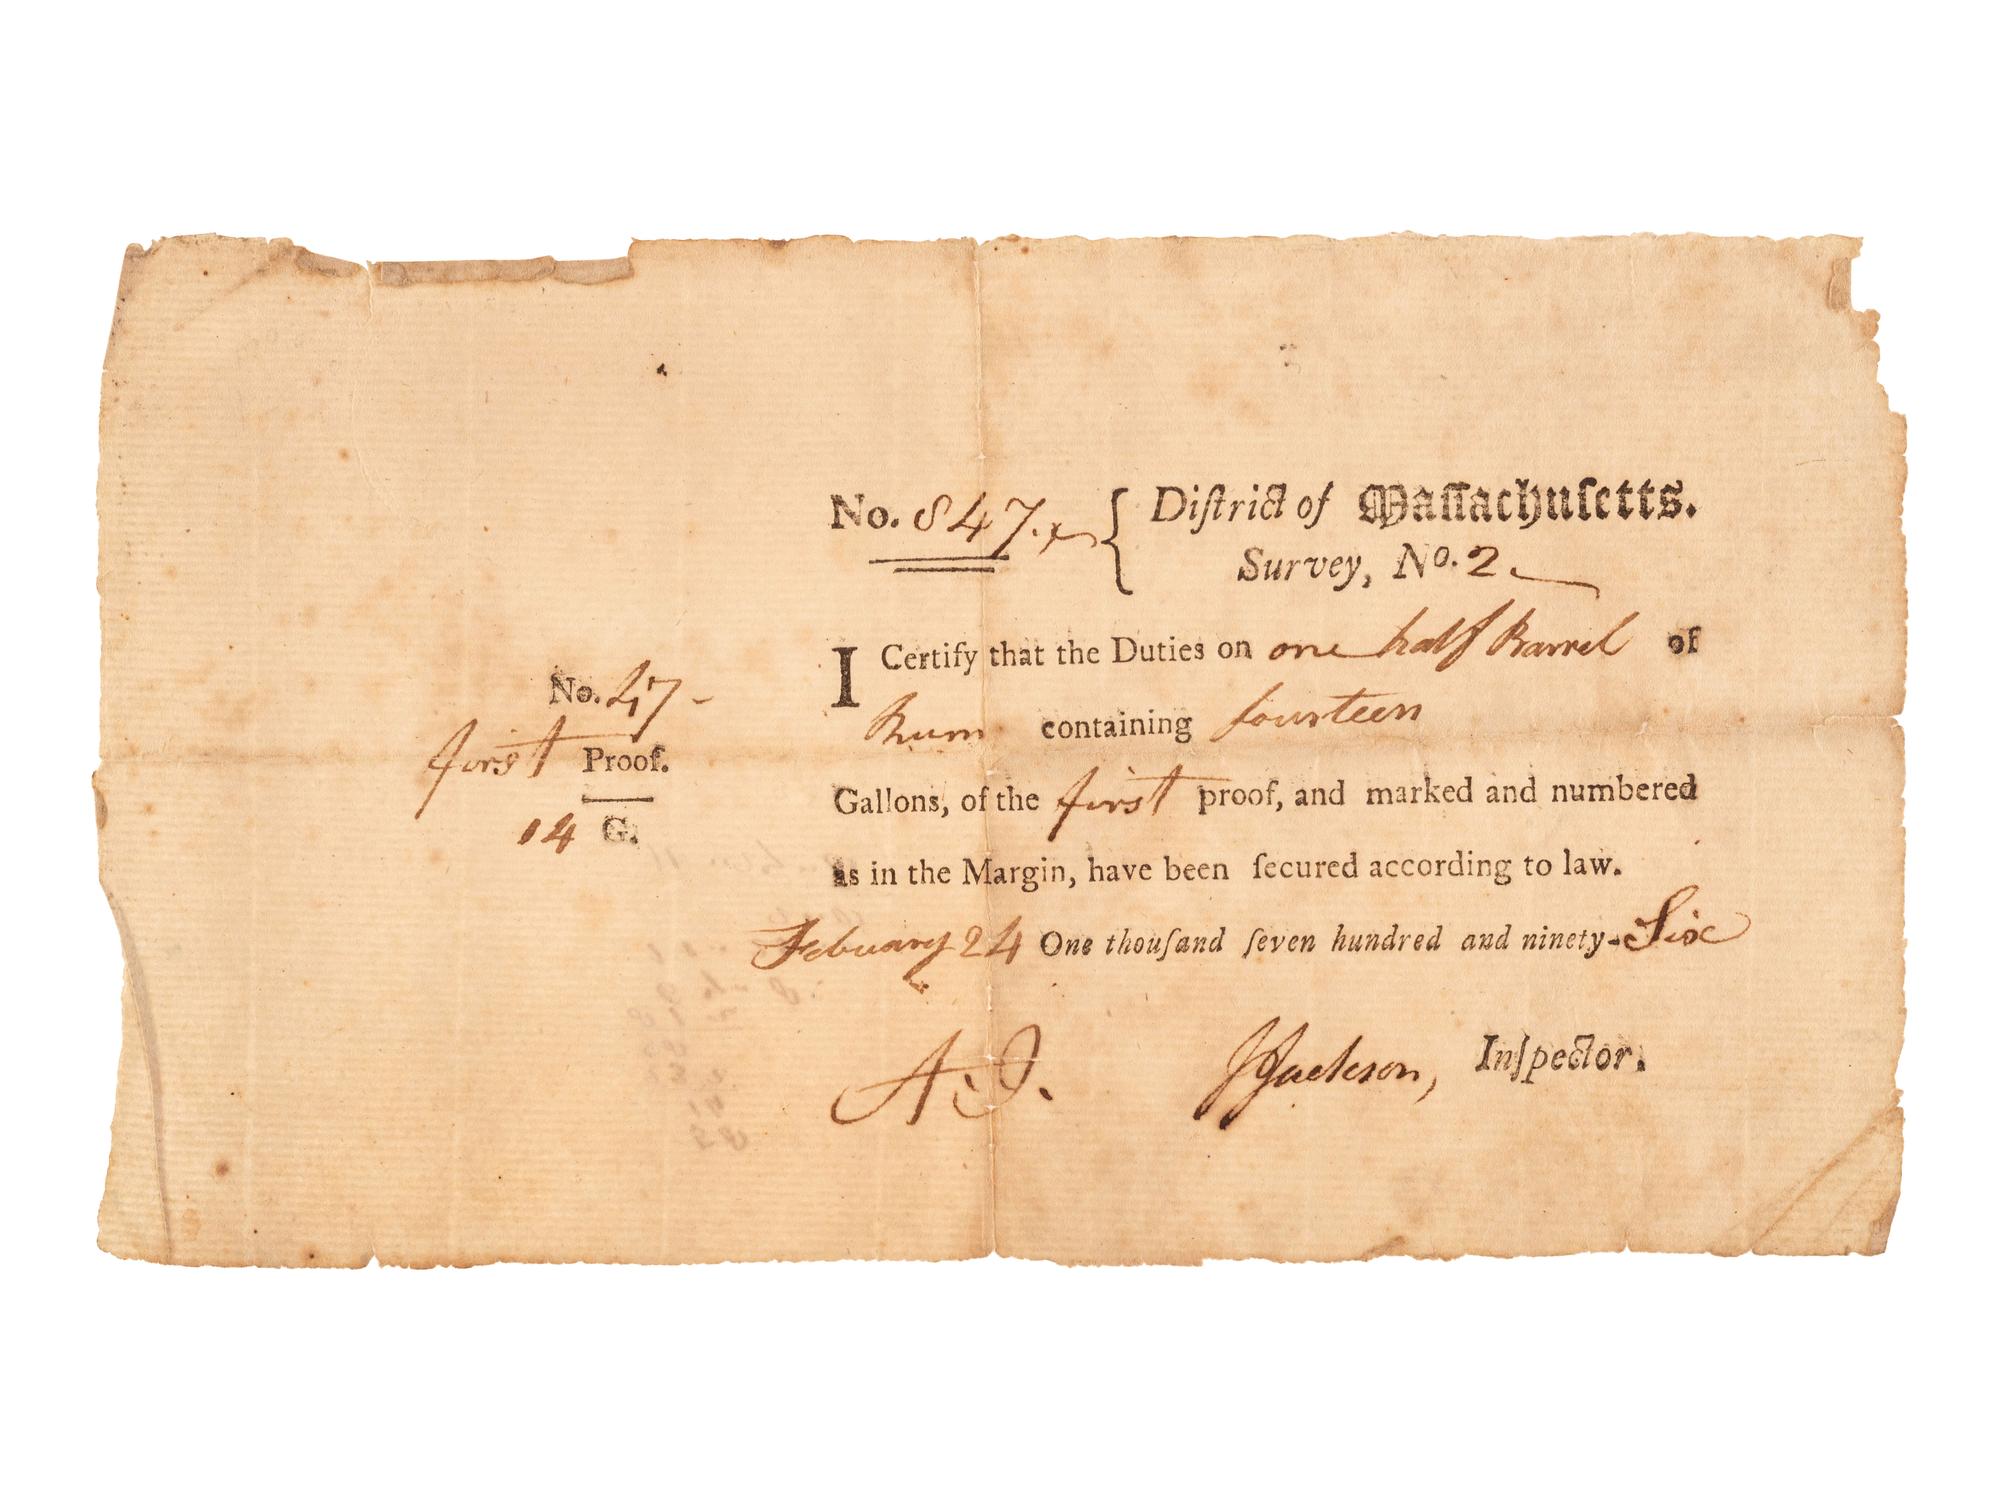 No. 847. { Diſtrict of Maſſachuſetts.
Survey, No. 2
I Certify that the Duties on one half Barrel of
Rum containing fourteen
Gallons, of the first proof, and marked and numbered
as in the Margin, have been ſecured according to law.
February 24 One thouſand ſeven hundred and ninety-Six
A. J. J Jackson, Inſpector.
No. 47 -
first Proof.
14 G.